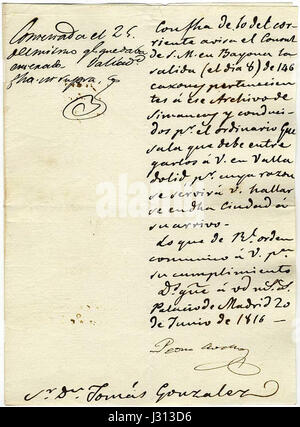 Contestada el 25.
del mismo q.e quedaba
enterado. Vallad.d
fha. ut supra.
Con fha. de 10 del cor-
riente avisa el Consul
de S. M. en Bayona la
salida (el dia 8) de 146
caxones pertenecien-
tes á ese Archivo de
Simancas y conduci-
dos p.r el ordinario
que debe entre-
garlos á V. en Valla-
dolid, p.r cuya razon
se servirá V. hallar
se en dha ciudad á
su arrivo.
Lo que de R.l orden
comunico á V. p.a
su cumplimiento
D.s gue. á V. m.s a.s
Palacio de Madrid 20
de Junio de 1816
Pedro
S.r D.n Tomás Gonzalez
alamy
Image ID: J313D6
www.alamy.com